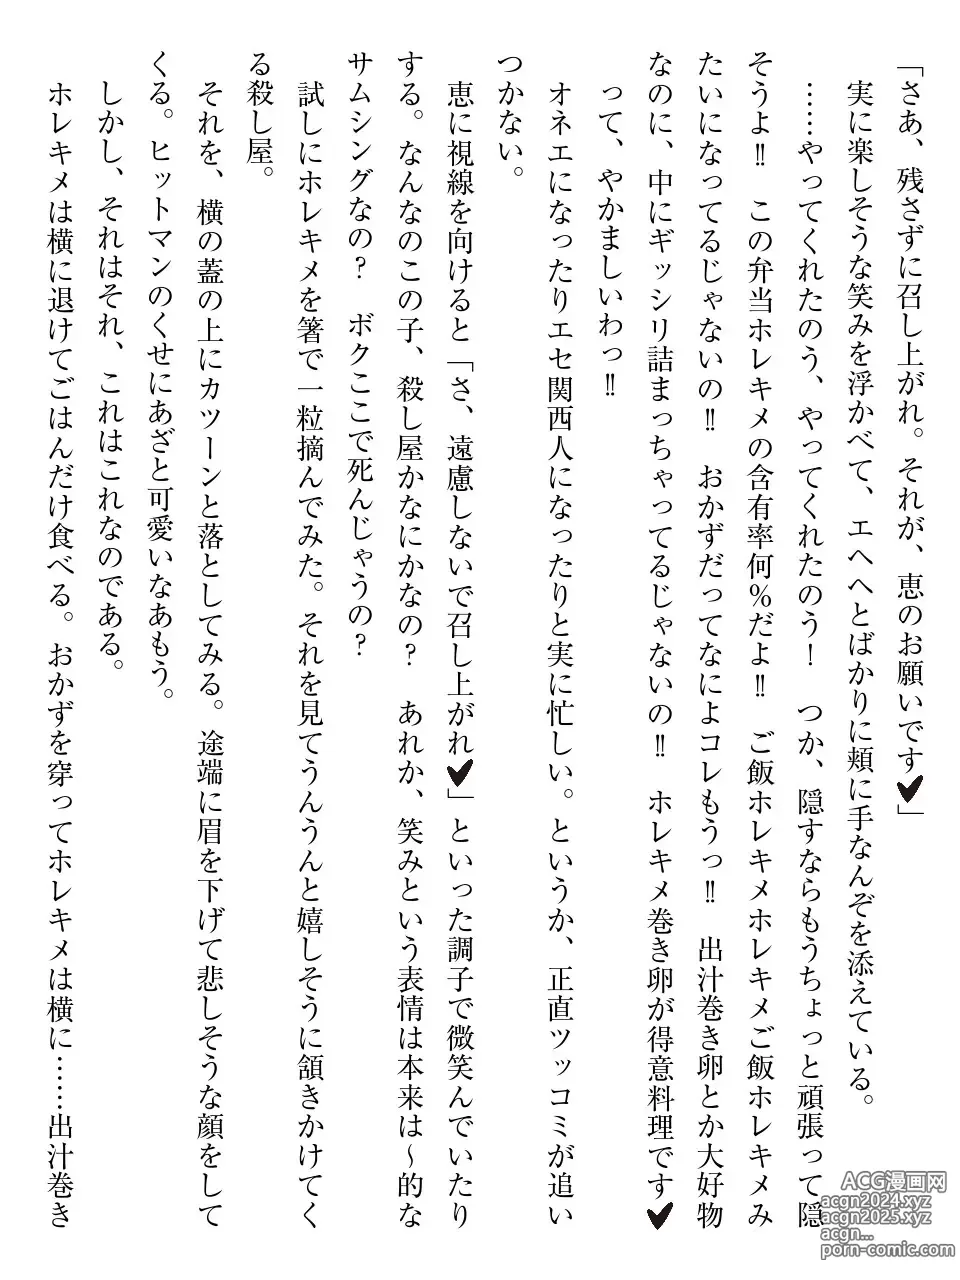 「さあ、残さずに召し上がれ。それが、恵のお願いです♥」
実に楽しそうな笑みを浮かべて、エヘヘとばかりに頬に手なんぞを添えている。
……やってくれたのう、やってくれたのう！　つか、隠すならもうちょっと頑張って隠
そうよ‼　この弁当ホレキメの含有率何％だよ‼　ご飯ホレキメホレキメご飯ホレキメみ
たいになってるじゃないの‼　おかずだってなによコレもうっ‼　出汁巻き卵とか大好物
なのに、中にギッシリ詰まっちゃってるじゃないの‼　ホレキメ巻き卵が得意料理です♥
って、やかましいわっ‼
オネエになったりエセ関西人になったりと実に忙しい。というか、正直ツッコミが追い
つかない。
恵に視線を向けると「さ、遠慮しないで召し上がれ♥」といった調子で微笑んでいたり
する。なんなのこの子、殺し屋かなにかなの？　あれか、笑みという表情は本来は～的な
サムシングなの？　ボクここで死んじゃうの？
試しにホレキメを箸で一粒摘んでみた。それを見てうんうんと嬉しそうに頷きかけてく
る殺し屋。
それを、横の蓋の上にカツーンと落としてみる。途端に眉を下げて悲しそうな顔をして
くる。ヒットマンのくせにあざと可愛いなあもう。
しかし、それはそれ、これはこれなのである。
ホレキメは横に退けてごはんだけ食べる。おかずを穿ってホレキメは横に……出汁巻き
ACG漫画网
acgn2024.xyz
acgn2025.xyz
acgn...
porn-comic.com